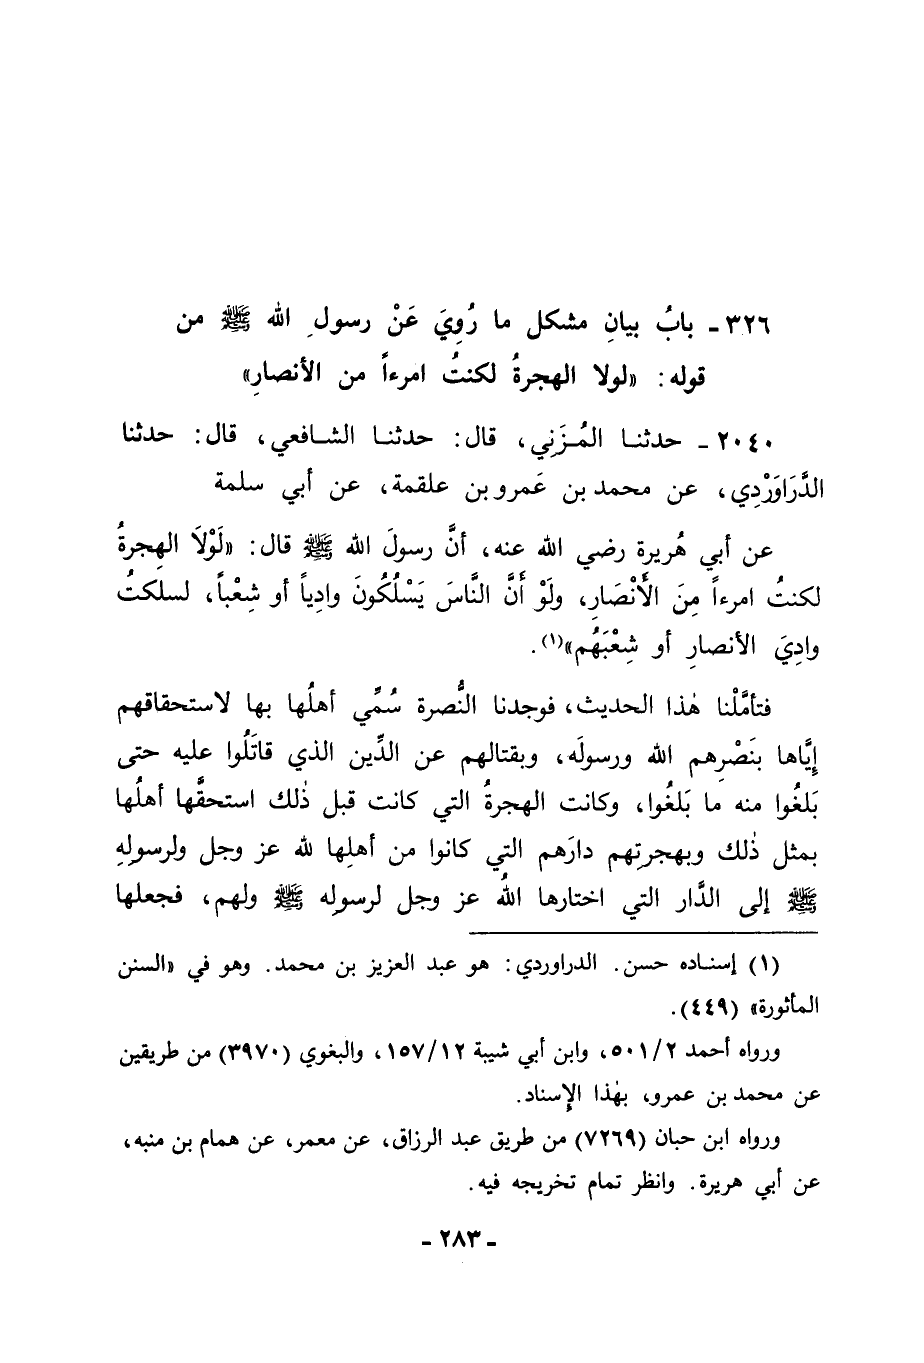 ٣٢٦ - بابُ بيانِ مشكل ما رُوِيَ عَنْ رسولِ الله ﷺ من
قوله: «لولا الهجرةُ لكنتُ امرءاً من الأنصارِ»
٢٠٤٠ - حدثنـا المُـزَنِي، قال: حدثنـا الشـافعي، قال: حدثنا
الدَّرَاوَرْدِي، عن محمد بن عَمرو بن علقمة، عن أبي سلمة
عن أبي هُريرة رضي الله عنه، أنَّ رسولَ الله ﷺ قال: «لَوْلاَ الهِجرةُ
لكنتُ امرءاً مِنَ الأَنْصَارِ، ولَوْ أَنَّ النَّاسَ يَسْلُكُونَ وادِياً أو شِعْباً، لسلكتُ
وادِيَ الأنصارِ أو شِعْبَهُم»(١).
فتأمَّلْنا هٰذا الحديث، فوجدنا النُّصرة سُمِّي أهلُها بها لاستحقاقهم
إيَّاها بنَصْرِهم الله ورسولَه، وبقتالهم عن الدِّين الذي قاتَلُوا عليه حتى
بَلغُوا منه ما بَلغُوا، وكانت الهجرةُ التي كانت قبل ذٰلك استحقَّها أهلُها
بمثل ذٰلك وبهجرتِهم دارَهم التي كانوا من أهلِها لله عز وجل ولرسولِهِ
ﷺ إلى الدَّار التي اختارها اللهُ عز وجل لرسولِه ﷺ ولهم، فجعلها
(١) إسنـاده حسن. الدراوردي: هو عبد العزيز بن محمد. وهو في «السنن
المأثورة» (٤٤٩).
ورواه أحمد ٥٠١/٢، وابن أبي شيبة ١٥٧/١٢، والبغوي (٣٩٧٠) من طريقين
عن محمد بن عمرو، بهٰذا الإسناد.
ورواه ابن حبان (٧٢٦٩) من طريق عبد الرزاق، عن معمر، عن همام بن منبه،
عن أبي هريرة. وانظر تمام تخريجه فيه.
- ٢٨٣ -